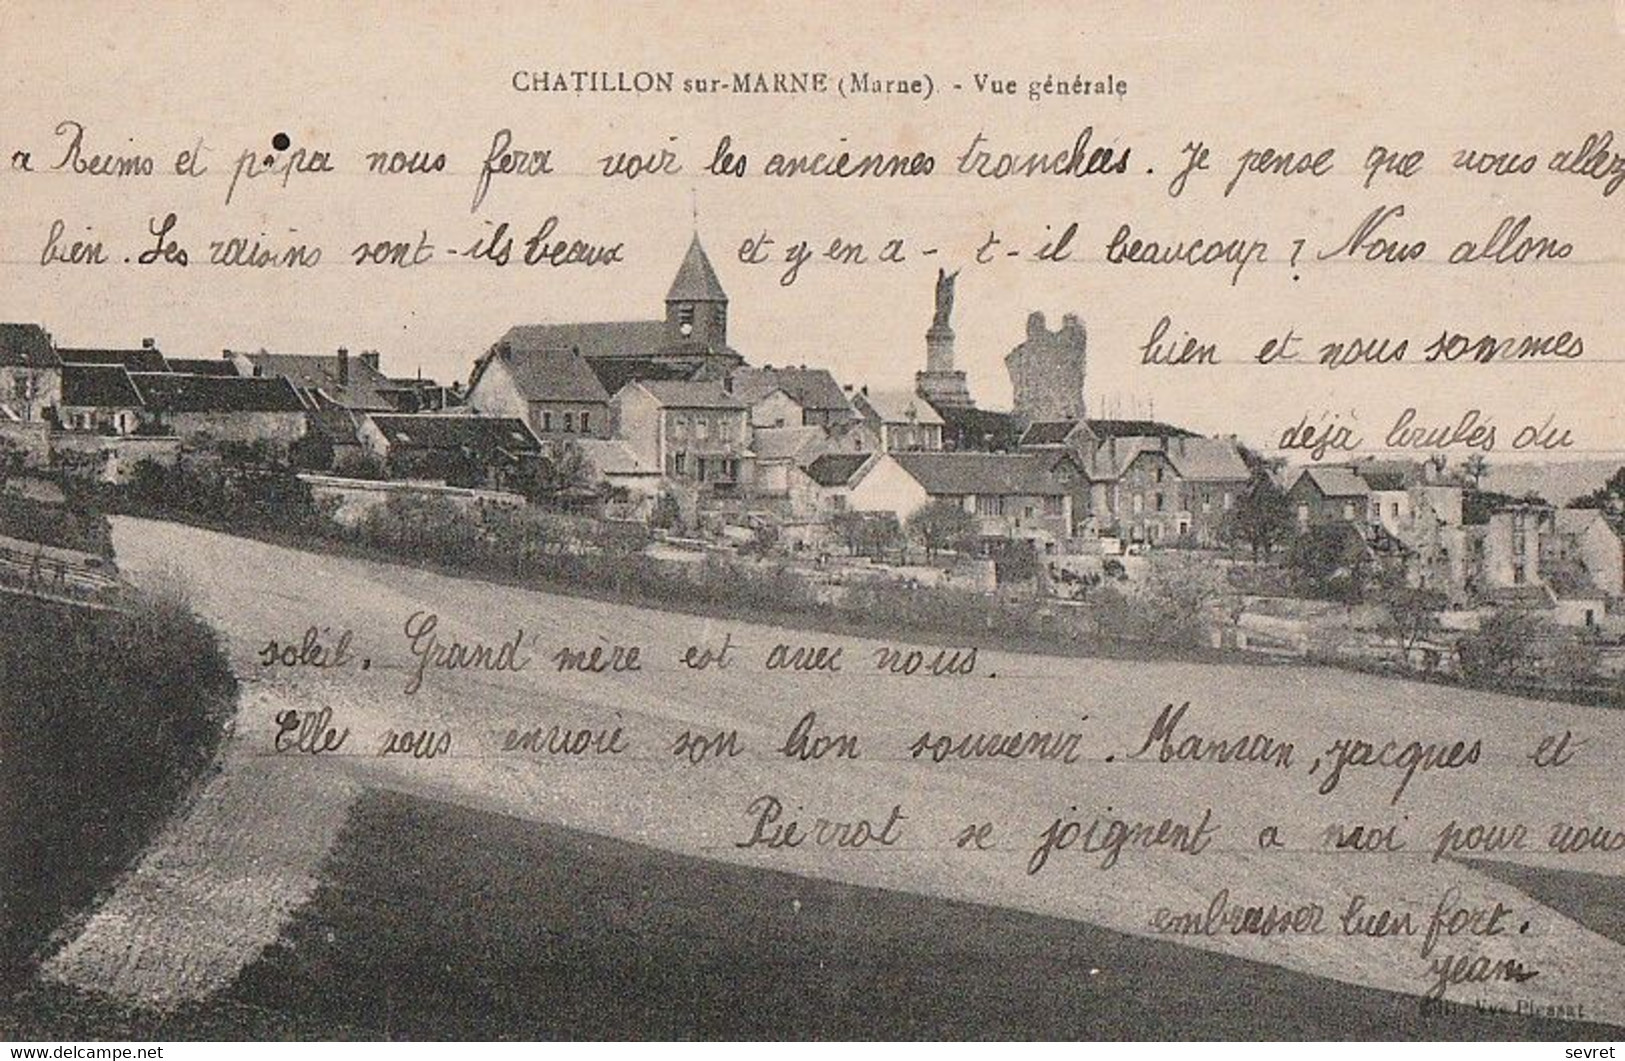 CHATILLON sur-MARNE (Marne). - Vue générale
a Reims et papa nous fera voir les anciennes tranchées. Je pense que vous allez
bien. Les raisins sont-ils beaux et y en a-t-il beaucoup? Nous allons
bien et nous sommes
déjà brulés du
soleil. Grand mère est avec nous.
Elle vous envoie son bon souvenir. Maman, jacques et
Pierrot se joignent a moi pour vous
embrasser bien fort.
jean
sevret